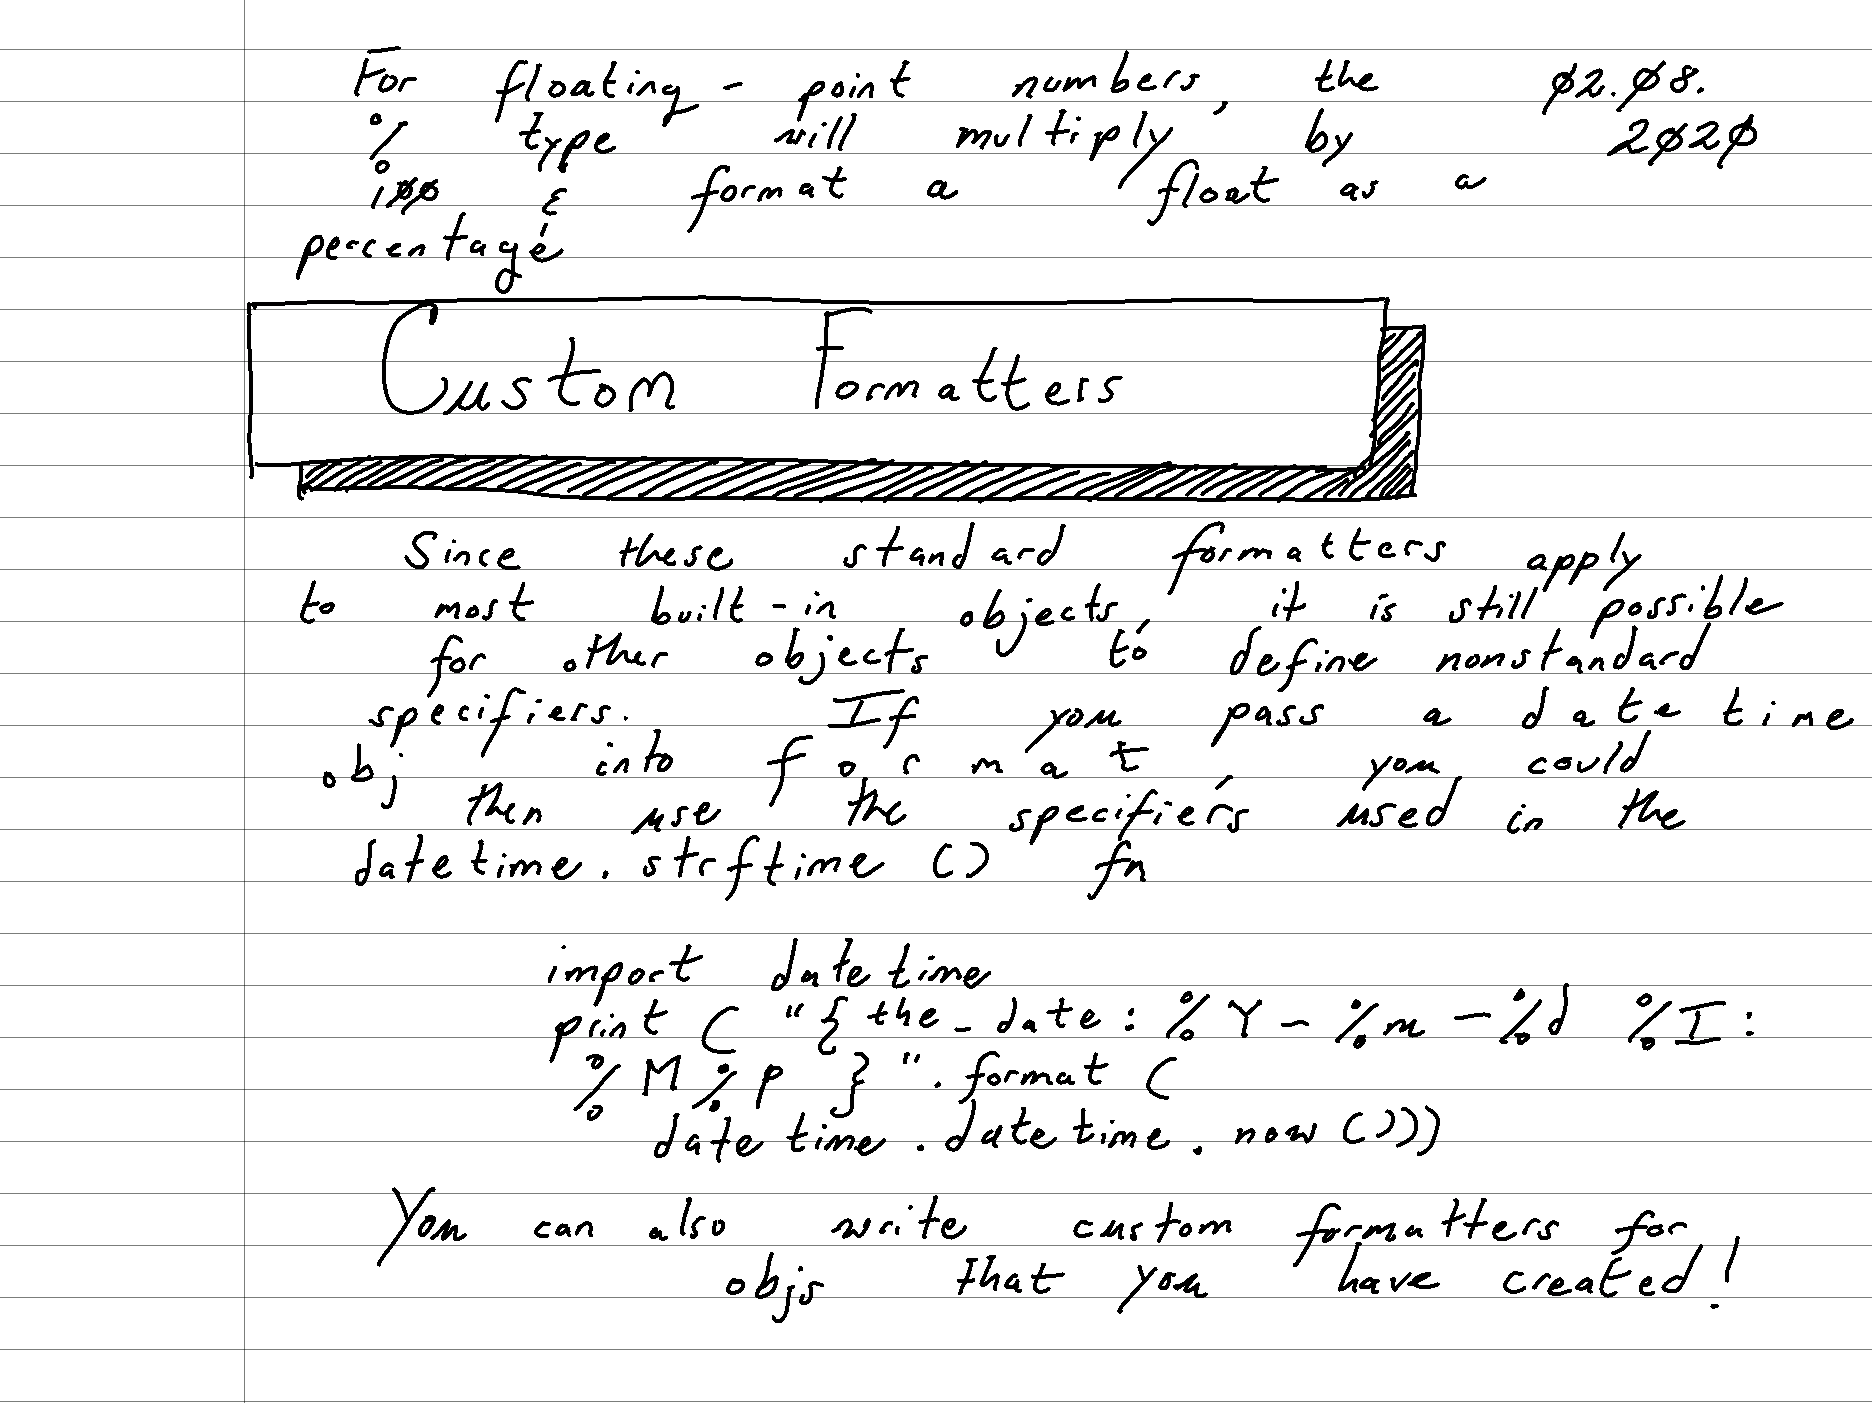 For floating-point numbers, the Ø2.Ø8.
% type will multiply by 2Ø2Ø
1ØØ & format a float as a
percentage
Custom Formatters
Since these standard formatters apply
to most built-in objects, it is still possible
for other objects to define nonstandard
specifiers. If you pass a datetime
obj into format, you could
then use the specifiers used in the
datetime.strftime() fn
import datetime
print ( "{the_date: %Y-%m-%d %I:
%M%p }".format (
datetime.datetime.now()))
You can also write custom formatters for
objs that you have created!